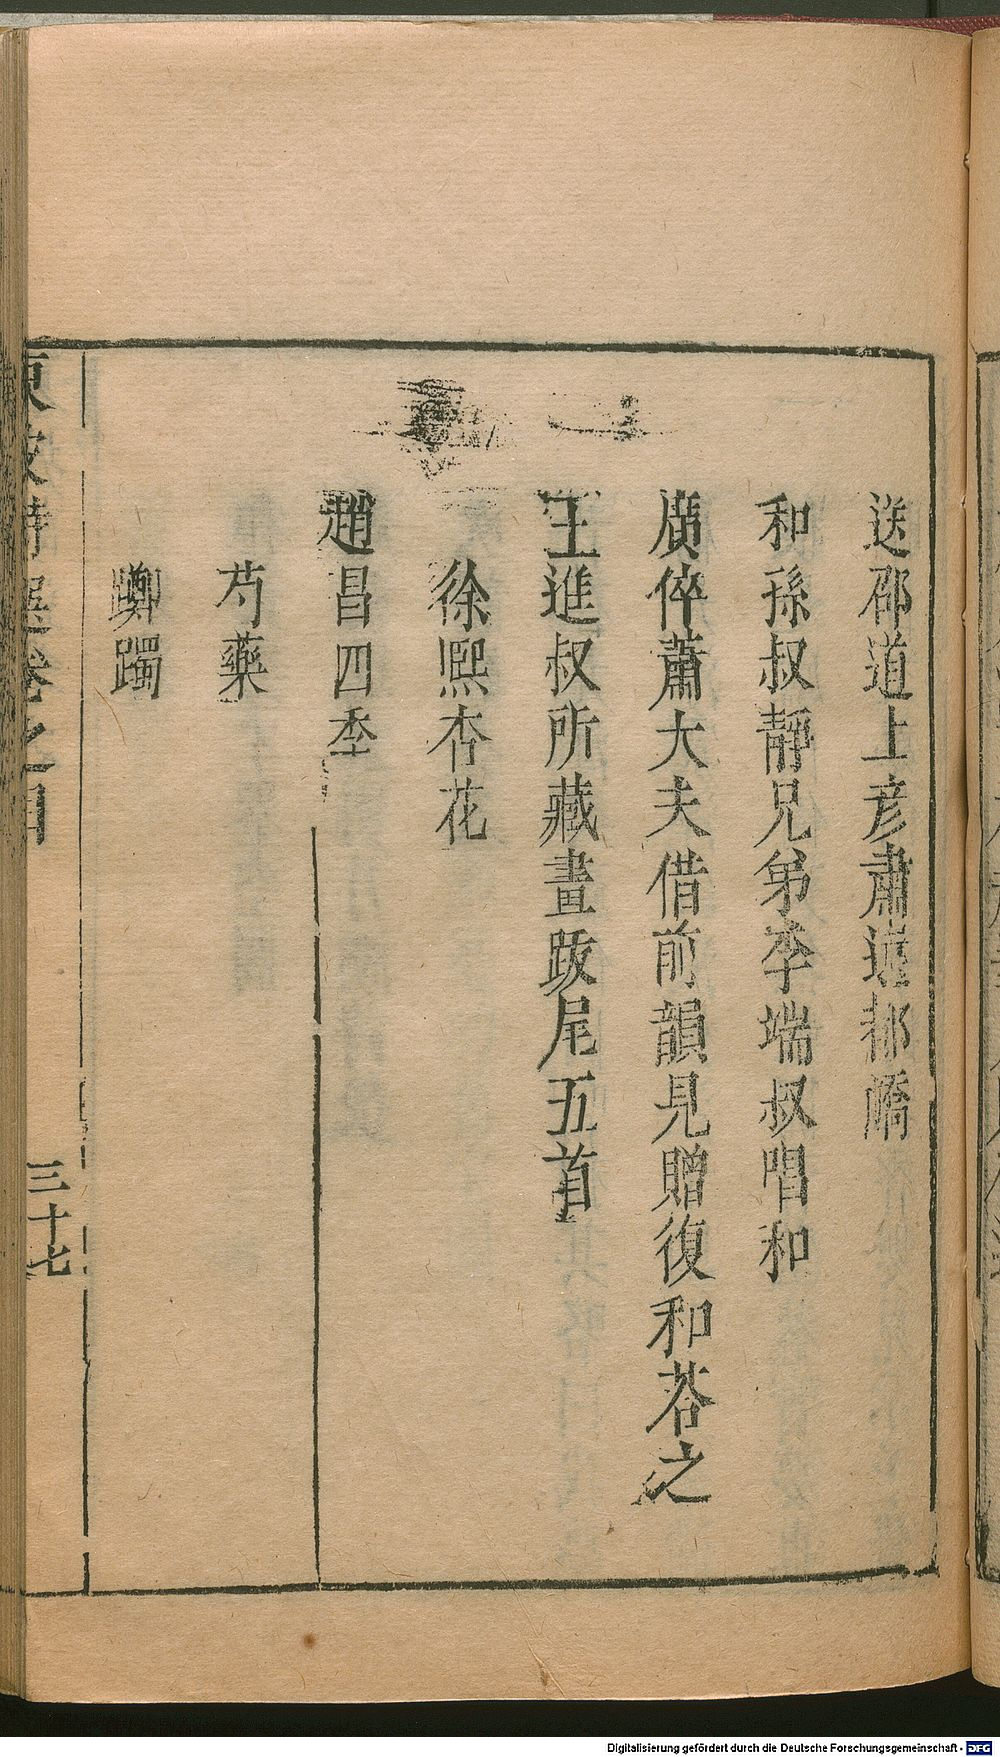 送邵道士彦肅還都嶠
和孫叔靜兄弟李端叔唱和
廣倅蕭大夫借前韻見贈復和荅之
王進叔所藏畫跋尾五首
徐熙杏花
趙昌四季
芍藥
躑躅
東坡詩選卷之目
三十七
Digitalisierung gefördert durch die Deutsche Forschungsgemeinschaft - DFG